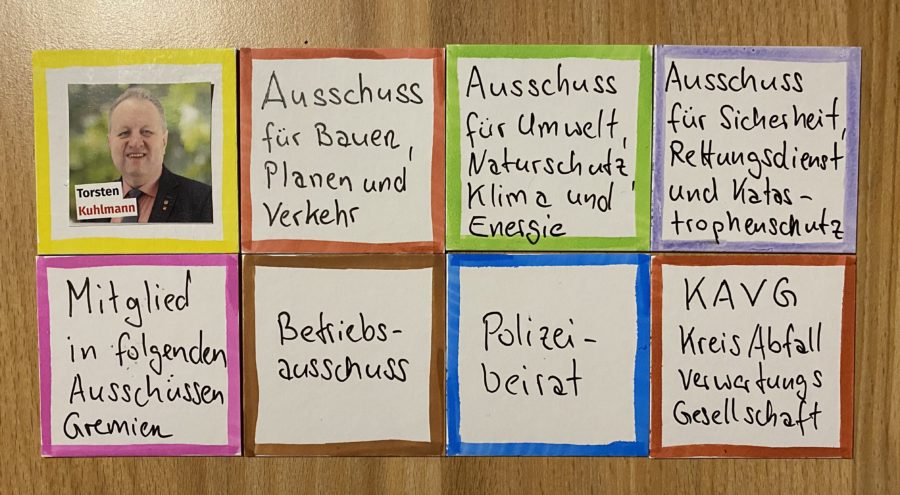 Torsten
Kuhlmann
Ausschuss
für Bauen,
Planen und
Verkehr
Ausschuss
für Umwelt,
Naturschutz,
Klima und
Energie
Ausschuss
für Sicherheit,
Rettungsdienst
und Katas-
trophenschutz
Mitglied
in folgenden
Ausschüssen
Gremien
Betriebs-
ausschuss
Polizei-
beirat
KAVG
Kreis Abfall
Verwertungs
Gesellschaft